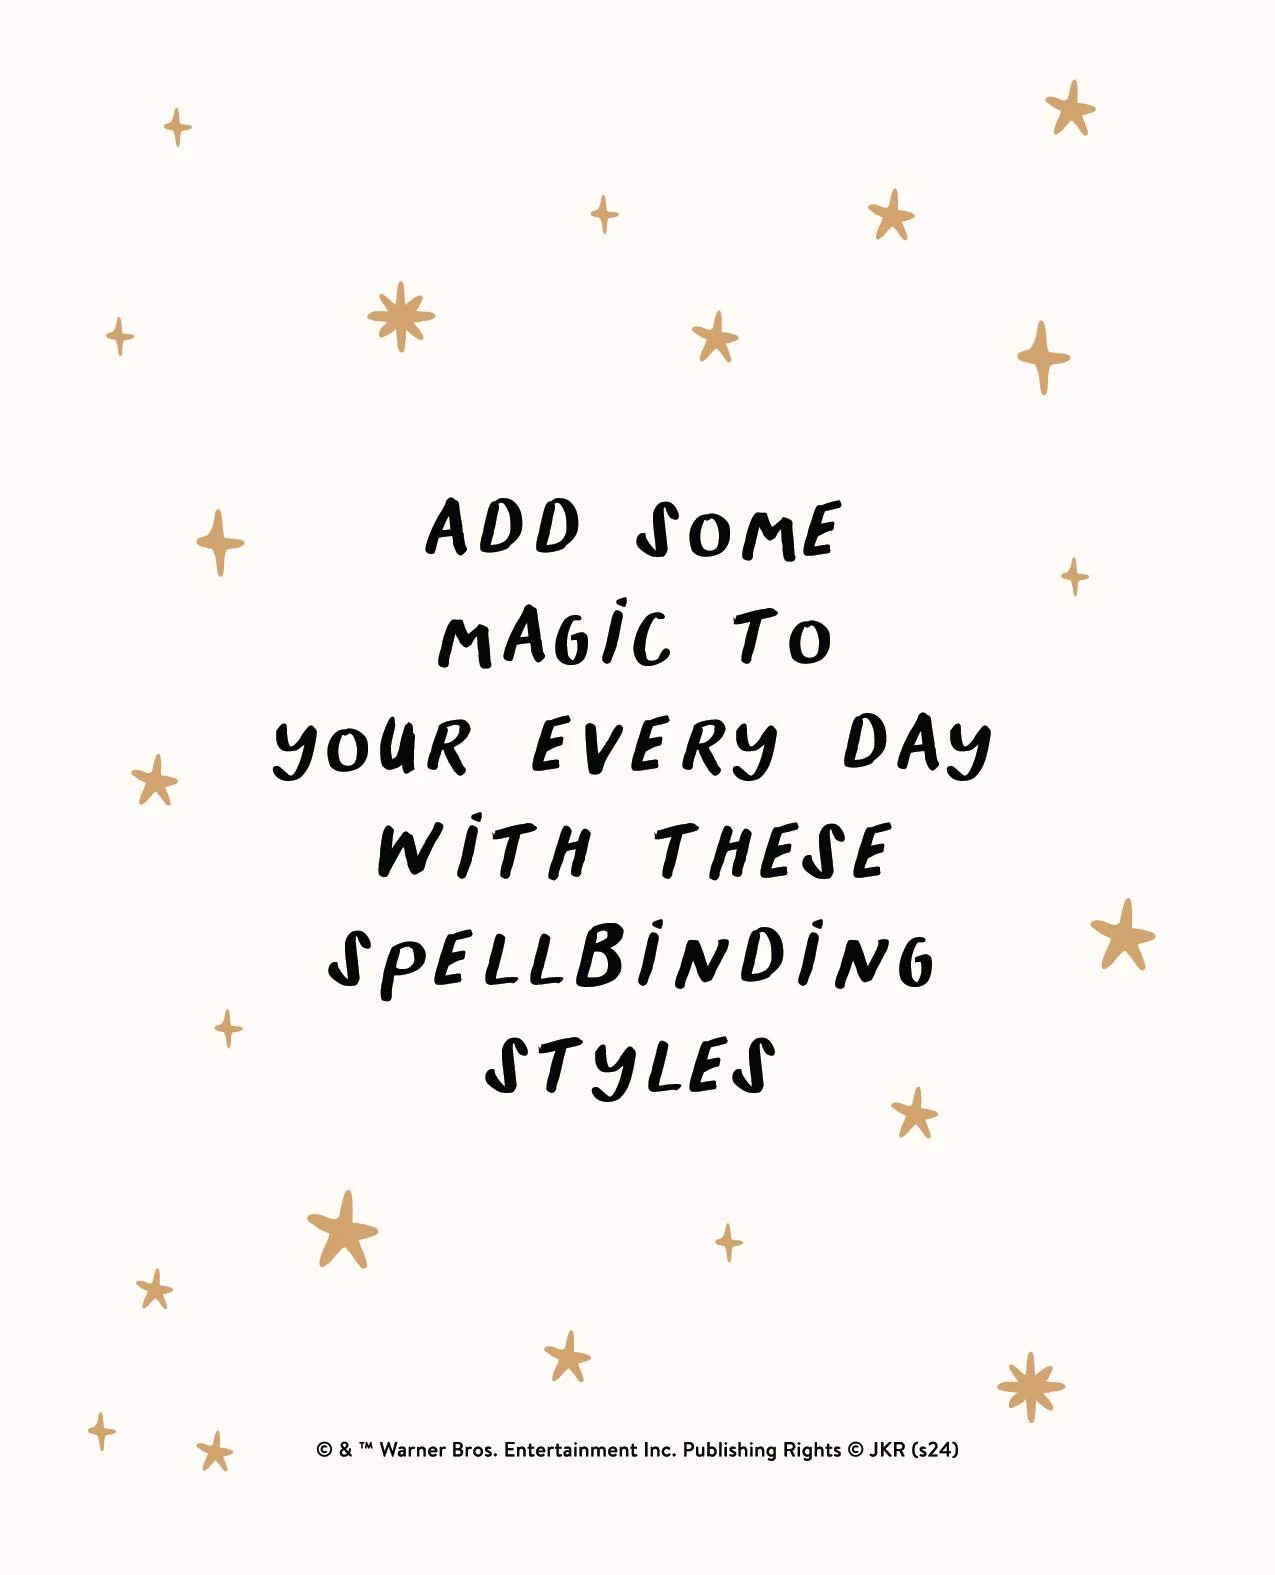 ADD SOME
MAGIC TO
YOUR EVERY DAY
WITH THESE
SPELLBINDING
STYLES
© & ™ Warner Bros. Entertainment Inc. Publishing Rights © JKR (s24)